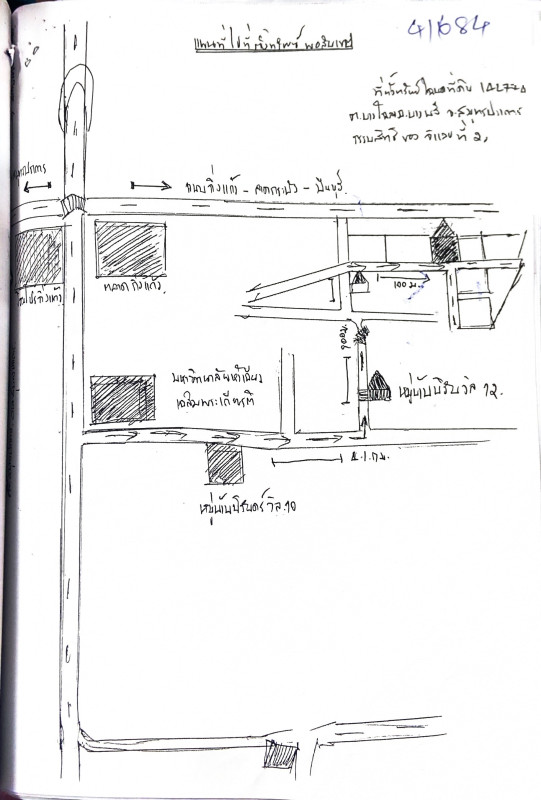 แผนที่ไปที่ตั้งทรัพย์ พอสังเขป
41684
ที่ตั้งทรัพย์ โฉนดที่ดิน
ต.บางโฉลง อ.บางพลี จ.สมุทรปราการ
กรรมสิทธิ์ ของ จำเลย ที่ 2,
สมุทรปราการ
ถนนกิ่งแก้ว - ลาดกระบัง - มีนบุรี
ตลาดกิ่งแก้ว
100 ม.
900 ม.
มหาวิทยาลัยหัวเฉียว
เฉลิมพระเกียรติ
หมู่บ้านปริญวิล 12.
2.1 กม.
หมู่บ้านปริญดร์วิล.10